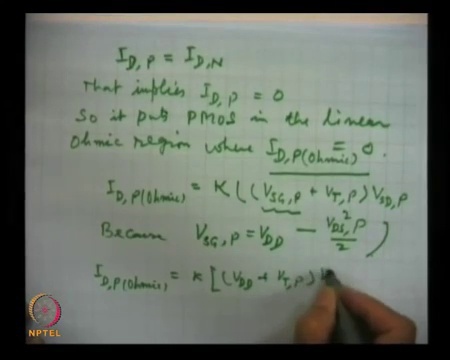 I_D,P = I_D,N
That implies I_D,P = 0
So it puts PMOS in the linear
Ohmic region where I_D,P(Ohmic) = 0.
I_D,P(Ohmic) = K((V_SG,P + V_T,P)V_SD,P
Because V_SG,P = V_DD - V_DS,P²/2)
I_D,P(Ohmic) = K[(V_DD + V_T,P)
NPTEL